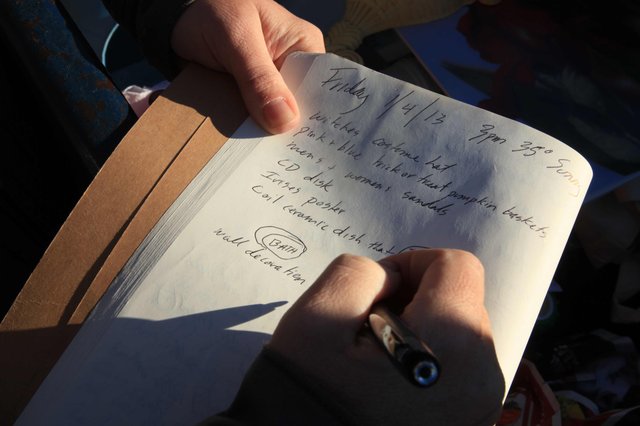 Friday 1/4/13 3pm 35° Sunny
Witches costume hat
Pink + blue trick or treat pumpkin baskets
men's, womens sandals
CD disk
Irises poster
Coil ceramic dish that
BATH
wall decoration